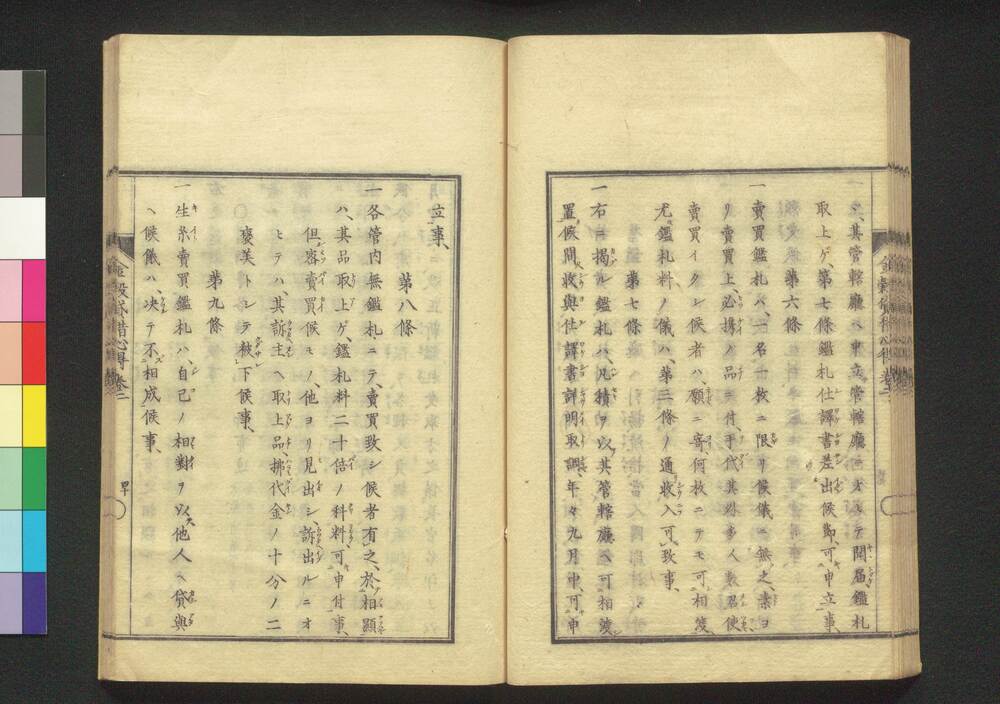 ハ、其管轄廳ヘ申立管轄廳ニオヰテ開届鑑札
取上ゲ、第七條鑑札仕譯書差出候節、可申立事、
第六條
一賣買鑑札ハ、一名一枚ニ限リ候儀ニ無之、素ヨ
リ賣買上、必携ノ品ニ付、手代其外多人數召使
賣買イタシ候者ハ、願ニ寄、何枚ニテモ可相渡、
尤鑑札料ノ儀ハ、第三條ノ通收入可致事、
第七條
一右ニ揭ル鑑札ハ、凡積ヲ以其管轄廳ヘ可相渡
置候間收與仕譯書詳明取調、年々九月中、可申
立事、
第八條
一各管内無鑑札ニテ、賣買致シ候者有之、於相顯
ハ、其品取上ゲ、鑑札料二十倍ノ科料可申付事、
但、密賣買候モノ、他ヨリ見出シ、訴出ルニオ
ヒテハ其訴主ヘ取上品、拂代金ノ十分ノ二
褒美トシテ被下候事、
第九條
一生糸賣買鑑札ハ、自己ノ相對ヲ以他人ヘ貸與
ヘ候儀ハ、決テ不相成候事、
金穀貸借心得 卷二